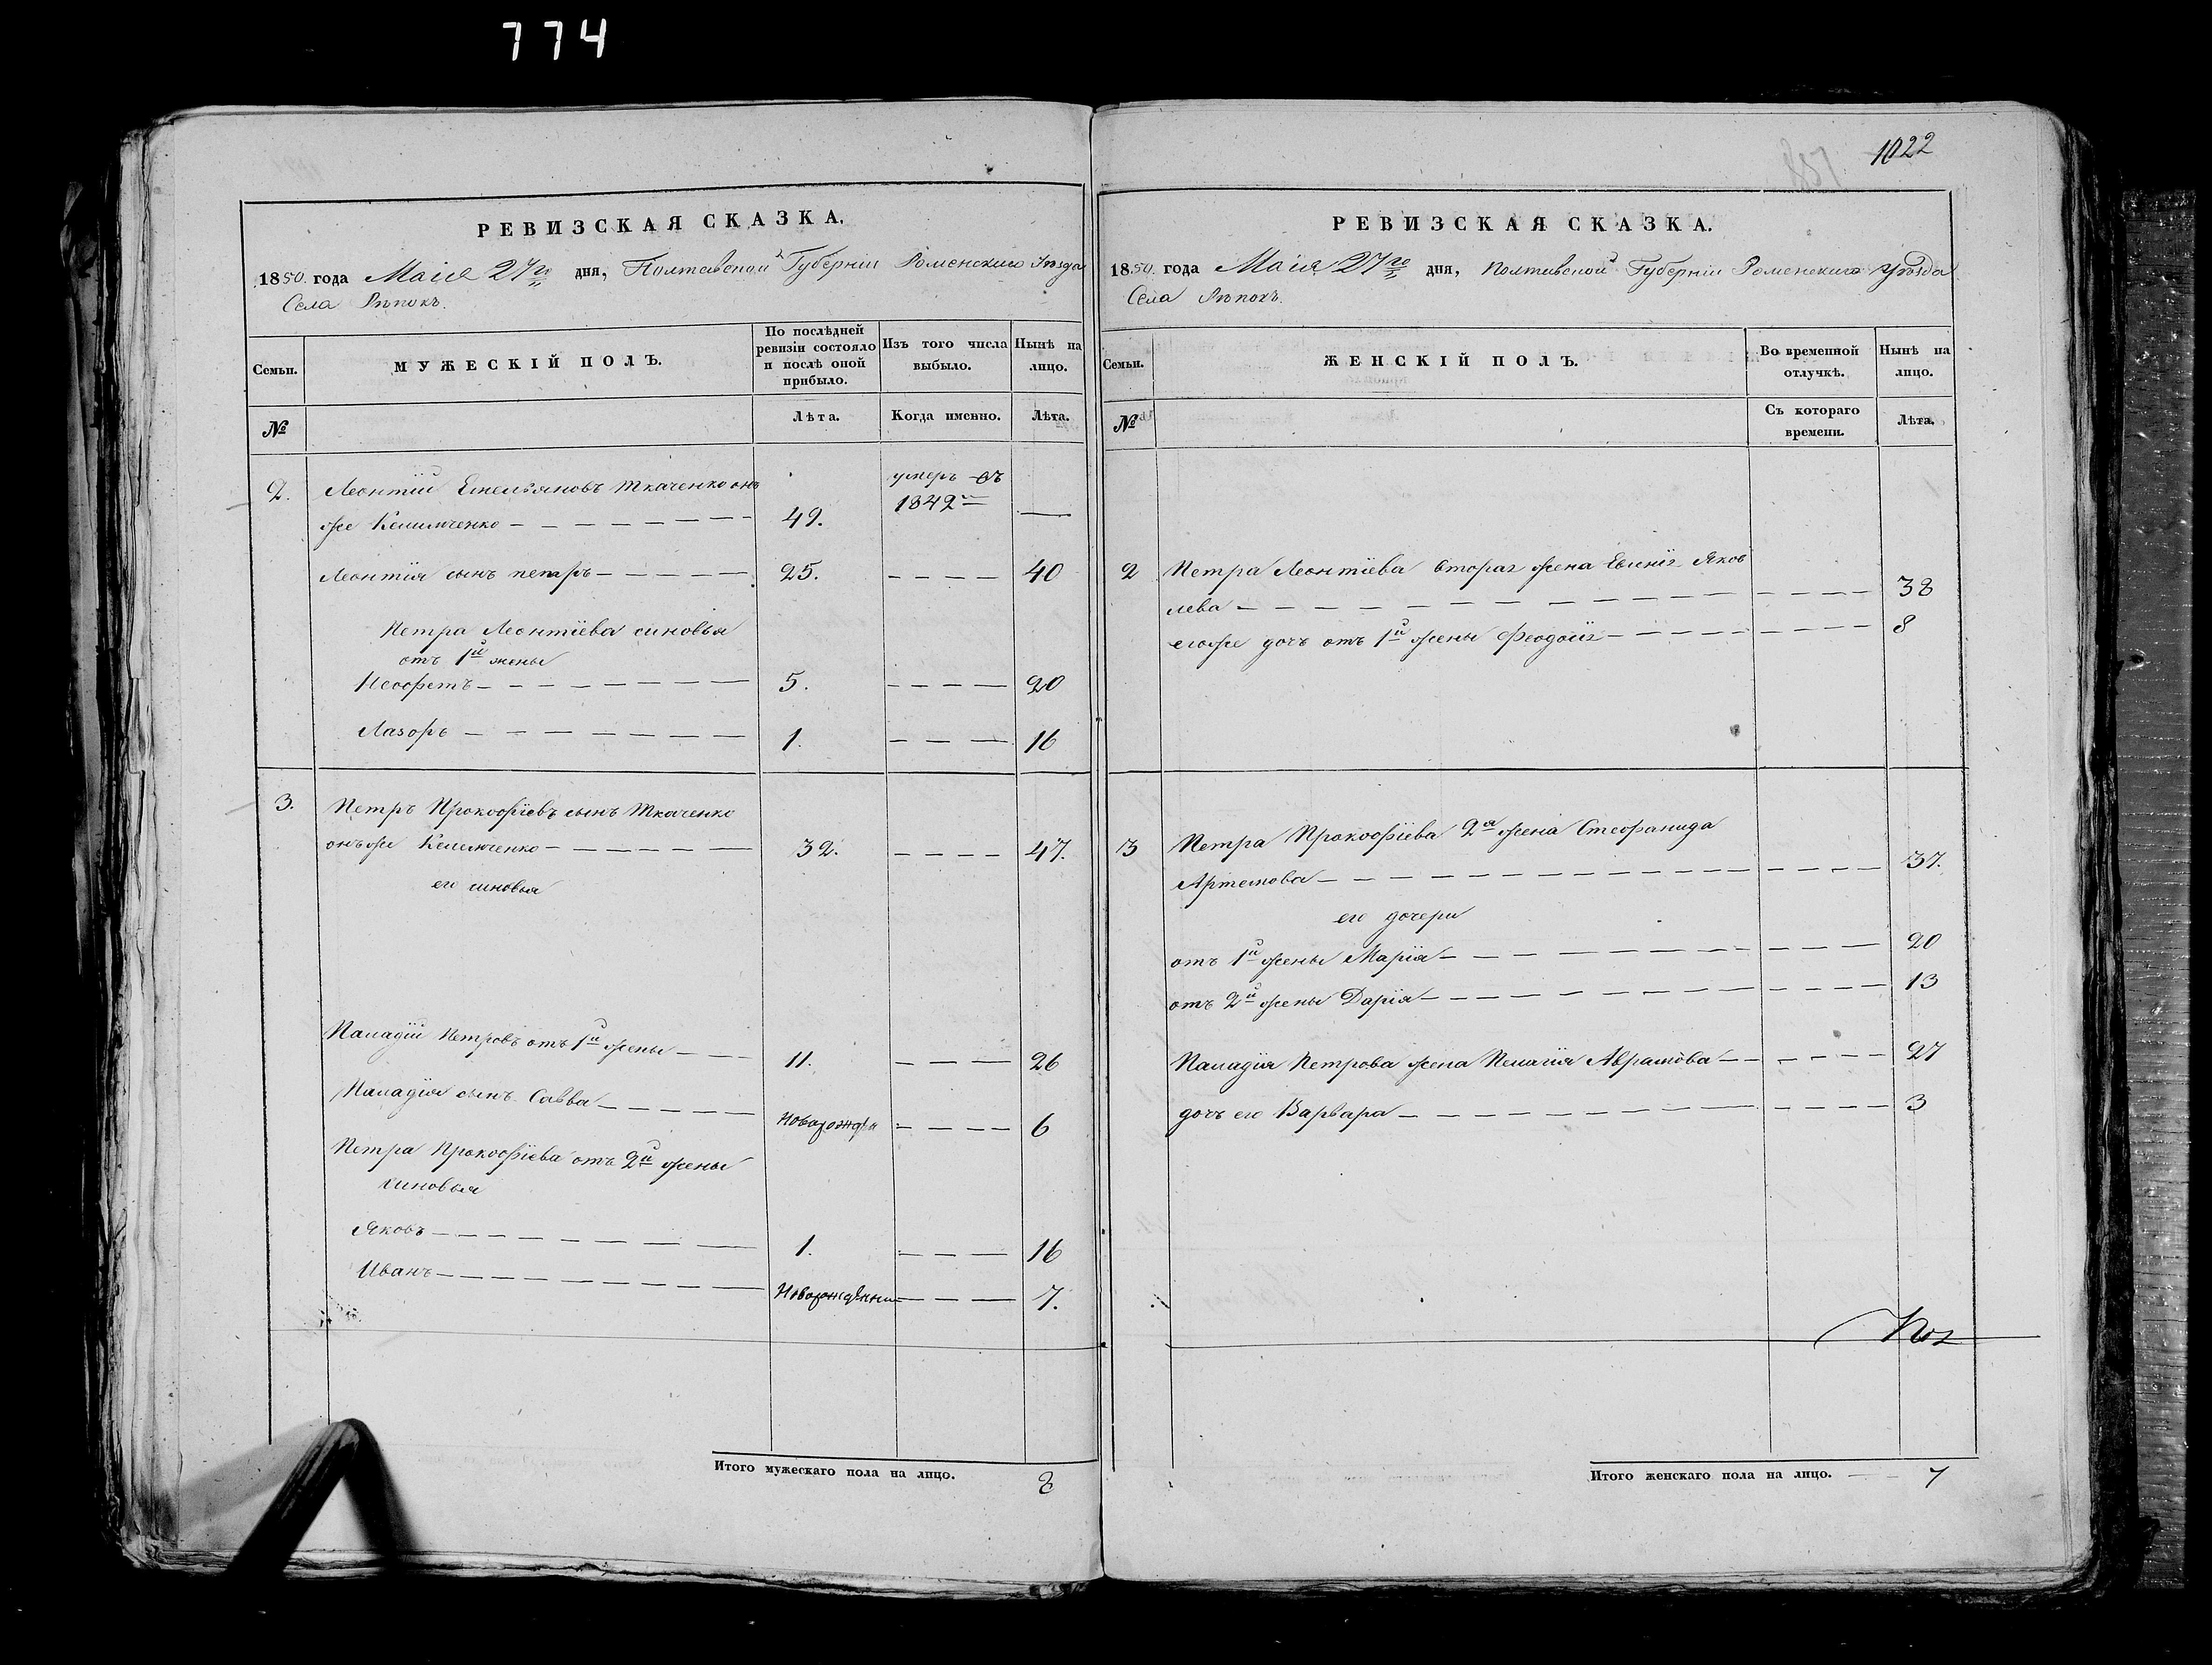 774
РЕВИЗСКАЯ СКАЗКА.
1850. года Маія 27го дня, Полтавской Губерніи Роменского Уѣзда
Села Рѣпокъ.
Семьи.
МУЖЕСКІЙ ПОЛЪ.
По послѣдней ревизіи состояло и послѣ оной прибыло.
Изъ того числа выбыло.
Нынѣ на лицо.
№
Лѣта.
Когда именно.
Лѣта.
2. Леонтій Емельяновъ Ткаченко онъ умеръ въ
же 49. 1842 —
Леонтія сынъ петръ 25. 40
Петра Леонтіева синовья
отъ 1й жены
Неофетъ 5. 20
Лазоръ 1. 16
3. Петръ Прокофіевъ сынъ Ткаченко
онъ же 32. 47.
его синовья
Паладій Петровъ отъ 1й жены 11. 26
Паладія сынъ Савва 6
Петра Прокофіева отъ 2й жены
синовья
Яковъ 1. 16
Иванъ 7.
Итого мужескаго пола на лицо. 8
1022
РЕВИЗСКАЯ СКАЗКА.
1850. года Маія 27го дня, Полтавской Губерніи Роменского Уѣзда
Села Рѣпокъ.
Семьи.
ЖЕНСКІЙ ПОЛЪ.
Во временной отлучкѣ.
Нынѣ на лицо.
№
Съ котораго времени.
Лѣта.
2 Петра Леонтіева вторая жена Яков
лева 38
его же дочь отъ 1й жены 8
3 Петра Прокофіева 2я жена Стефанида
Артемова 37.
его дочери
отъ 1й жены Марія 20
отъ 2й жены Дарія 13
Паладія Петрова жена Пелагія Аврамова 27
дочь его Варвара 3
Итого женскаго пола на лицо. 7